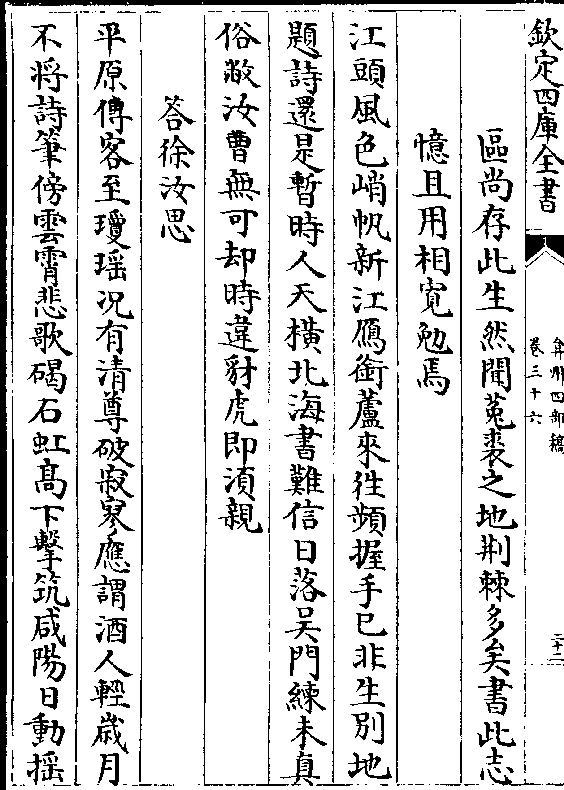 欽定四庫全書
弇州四部稿
卷三十六
二十二
區尚存此生然聞菟裘之地荆棘多矣書此志
憶且用相寛勉焉
江頭風色峭帆新江鴈銜蘆來往頻握手已非生別地
題詩還是暫時人天横北海書難信日落吳門練未真
俗敝汝曹無可却時違豺虎即湏親
荅徐汝思
平原傳客至瓊瑶况有清尊破寂寥應謂酒人輕歲月
不將詩筆傍雲霄悲歌碣石虹髙下擊筑咸陽日動揺